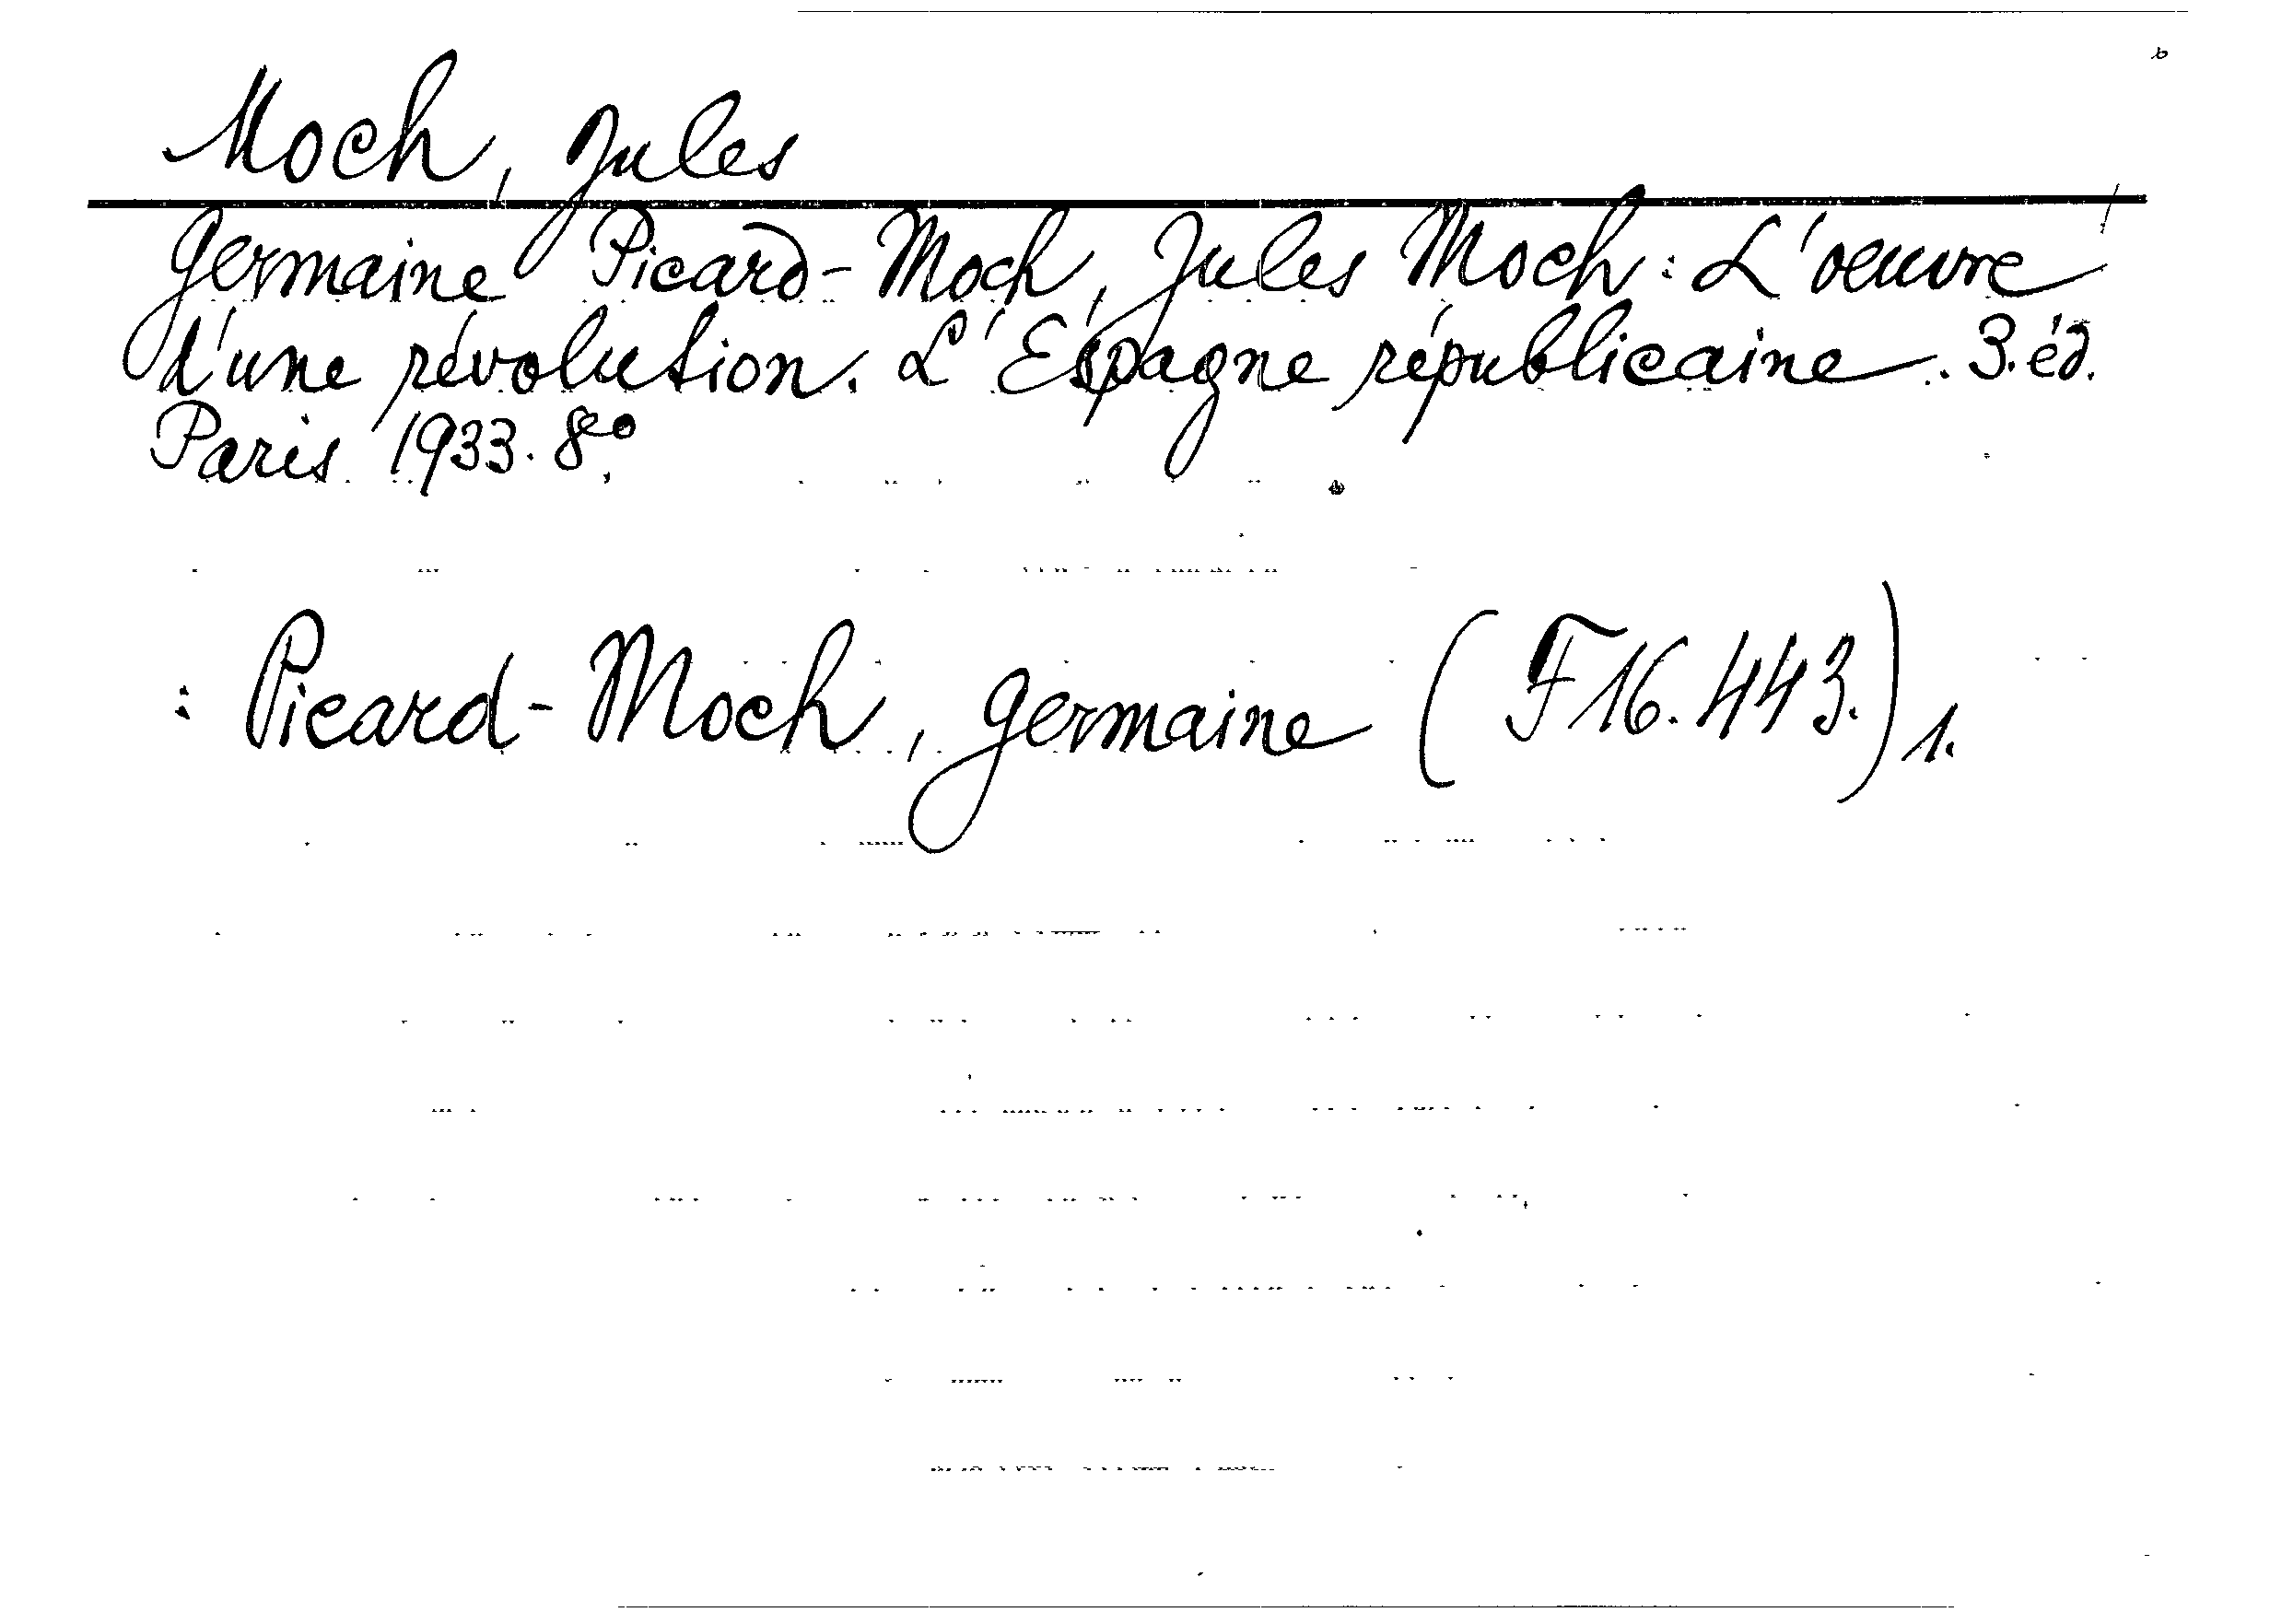 Moch, Jules
Germaine Picard-Moch, Jules Moch: L'oeuvre
d'une révolution. L'Espagne républicaine. 3. éd.
Paris 1933. 8°.
: Picard-Moch, Germaine (F16.443.) 1.